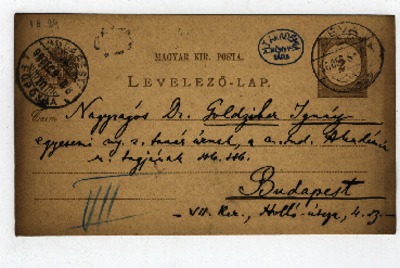 18.94
MAGYAR KIR. POSTA.
LEVELEZŐ-LAP.
M.T. AKADÉMIA KÖNYVTÁRA
Czím Nagyságos Dr. Goldziher Ignácz
egyetemi ny. r. tanár úrnak, a m. tud. Akadémia
r. tagjának stb. stb.
Budapest
VII. Ker., Holló-utcza, 4. sz.
VII